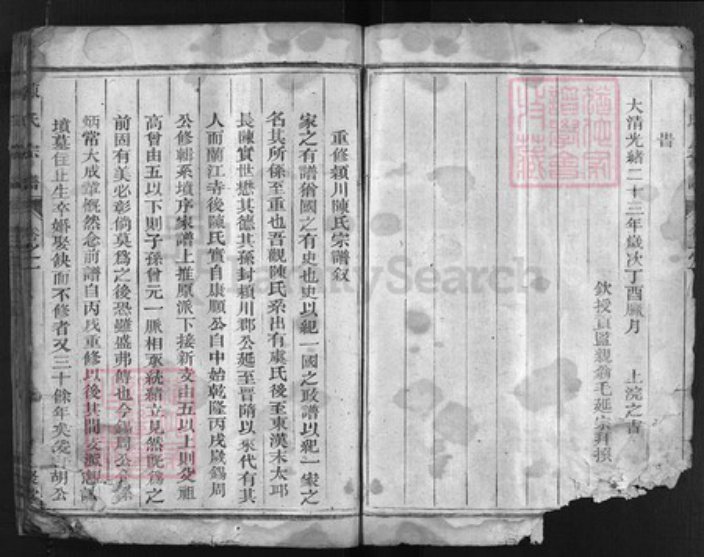 昔
大清光緒二十三年歲次丁酉臘月 上浣之吉
欽授貢監親翁毛延宗拜撰
重修潁川陳氏宗譜叙
家之有譜猶國之有史也史以紀一國之政譜以紀一家之
名其所係至重也吾觀陳氏系出有虞氏後至東漢末太邱
長陳實世懋其德其孫封潁川郡公延至晉隋以來代有其
人而蘭江寺後陳氏實自康順公自中始乾隆丙戌歲錫周
公修輯系墳序家譜上推原派下接新支由五以上則父祖
高曾由五以下則子孫曾元一脈相承統緒立見然旣爲之
前固有美必彰倘莫爲之後恐雖盛弗傳也今錫周公
炳常大成章慨然念前譜自丙戌重修以後其間支派
墳墓住址生卒婚娶缺而不修者又三十餘年矣爰 胡公
陳氏宗譜